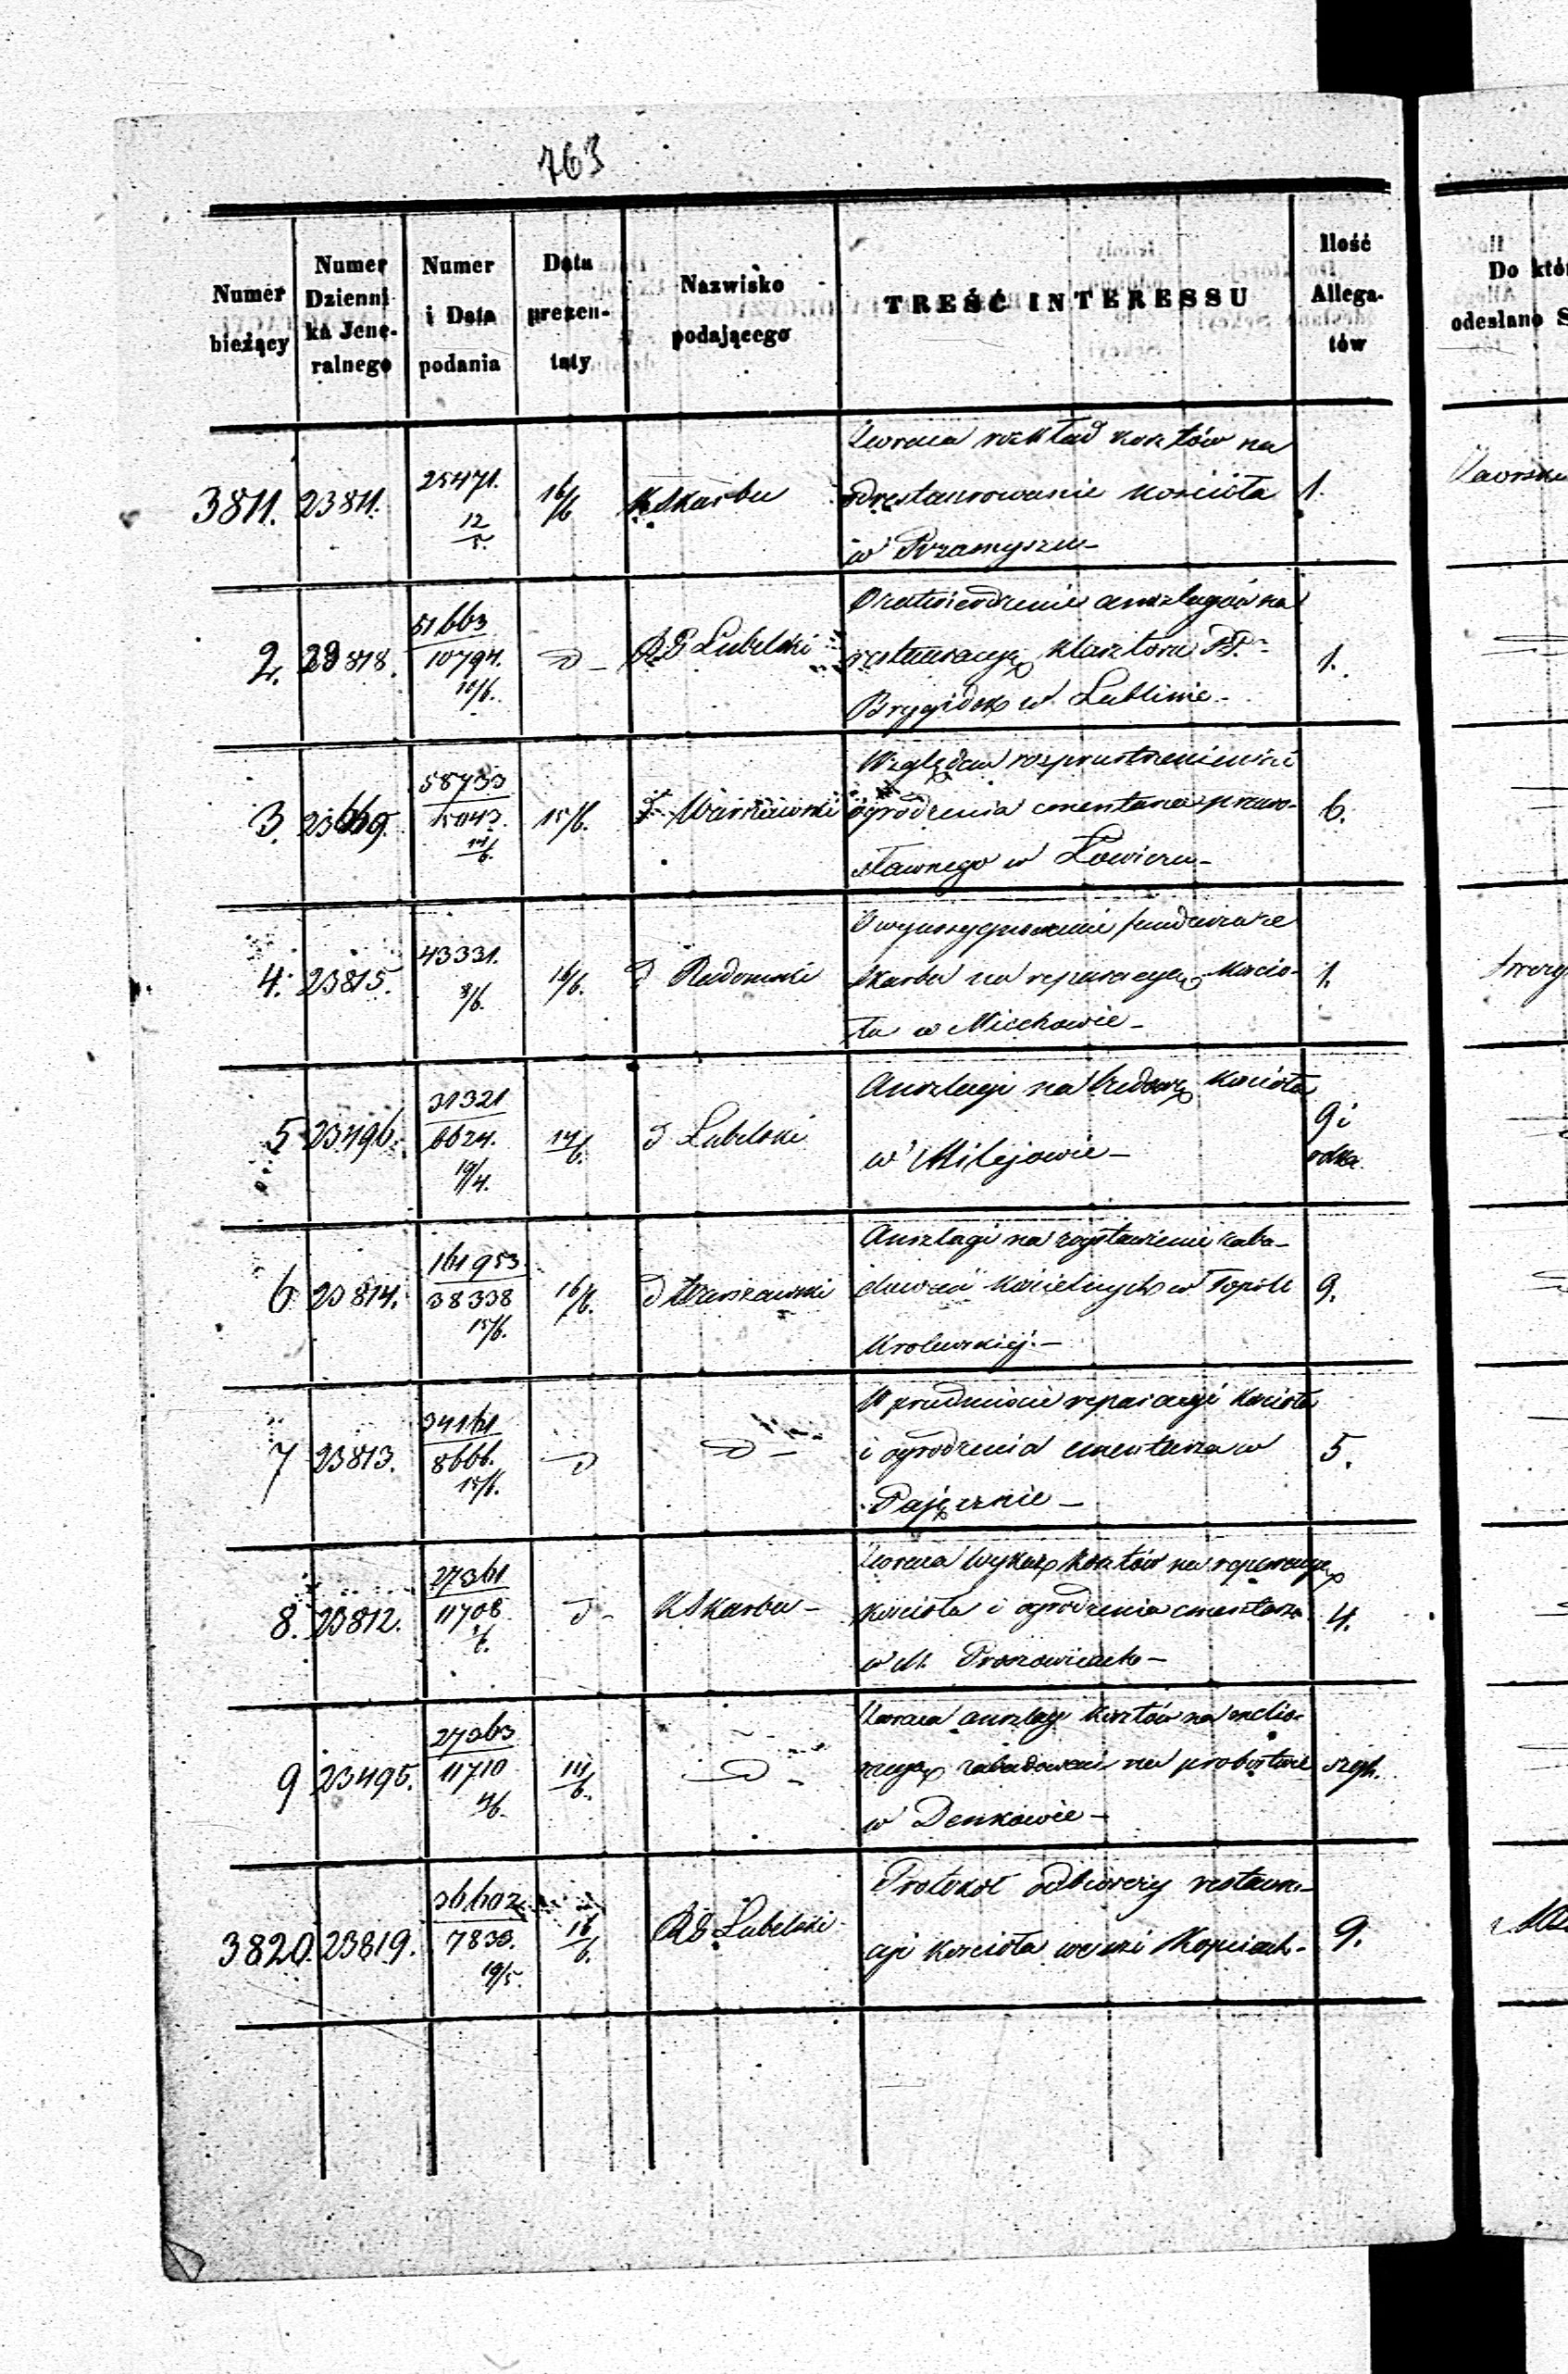 763
Numer bieżący
Numer Dzienni- ka Jene- ralnego
Numer i Data podania
Data prezen- taty
Nazwisko podającego
TREŚĆ INTERESSU
Ilość Allega- tów
Do któ
odesłano S
3811. 23811. 25471. 12/5. 16/6 K Skarbu
Zwraca rozkład kosztów na
odrestaurowanie kościoła 1.
w Przamyszu
2. 23818. 51663 10794. 10/6. D R G Lubelski
O zatwierdzenie anszlagów na
restauracyę klasztoru PP. 1.
Brygidek w Lublinie
3. 23669. 58733 15043. 14/6. 15/6. D Warszawski
Względem rozprzestrzenienia i
ogrodzenia cmentarza prawo- 6.
sławnego w Łowiczu
4. 23815. 43331. 8/6. 16/6. D Radomski
O wyassygnowanie funduszu ze
Skarbu na reparacyę kościo- 1.
ła w Miechowie
5 23496. 31321 6624. 19/4. 14/6. D Lubelski
Anszlagi na budowę kościoła
w Milejowie 9 i
6 23814. 161953 38338 15/6. 16/6. D Warszawski
Anszlagi na wystawienie zabu-
dowań kościelnych w Topoli 9.
Krolewskiéj.
7 23813. 34161 8666. 15/6. D D
W przedmiocie reparacyi kościoła
i ogrodzenia cmentarza w 5.
Pajęcznie
8. 23812. 27361 11708 D K Skarbu
Zwraca wykaz kosztów na reparacyę
kościoła i ogrodzenia cmentarza 4.
w M. Proszowicach
9 23495. 27363 11710 4/6. 14/6. D
Zwraca anszlag kosztów na
zabudowań na probostwie
w Denkowie
3820. 23819. 36602 7830. 19/5. 16/6. R G Lubelski
Protokół odbiorczy restaura-
cyi kościoła we wsi Kopciach. 9.